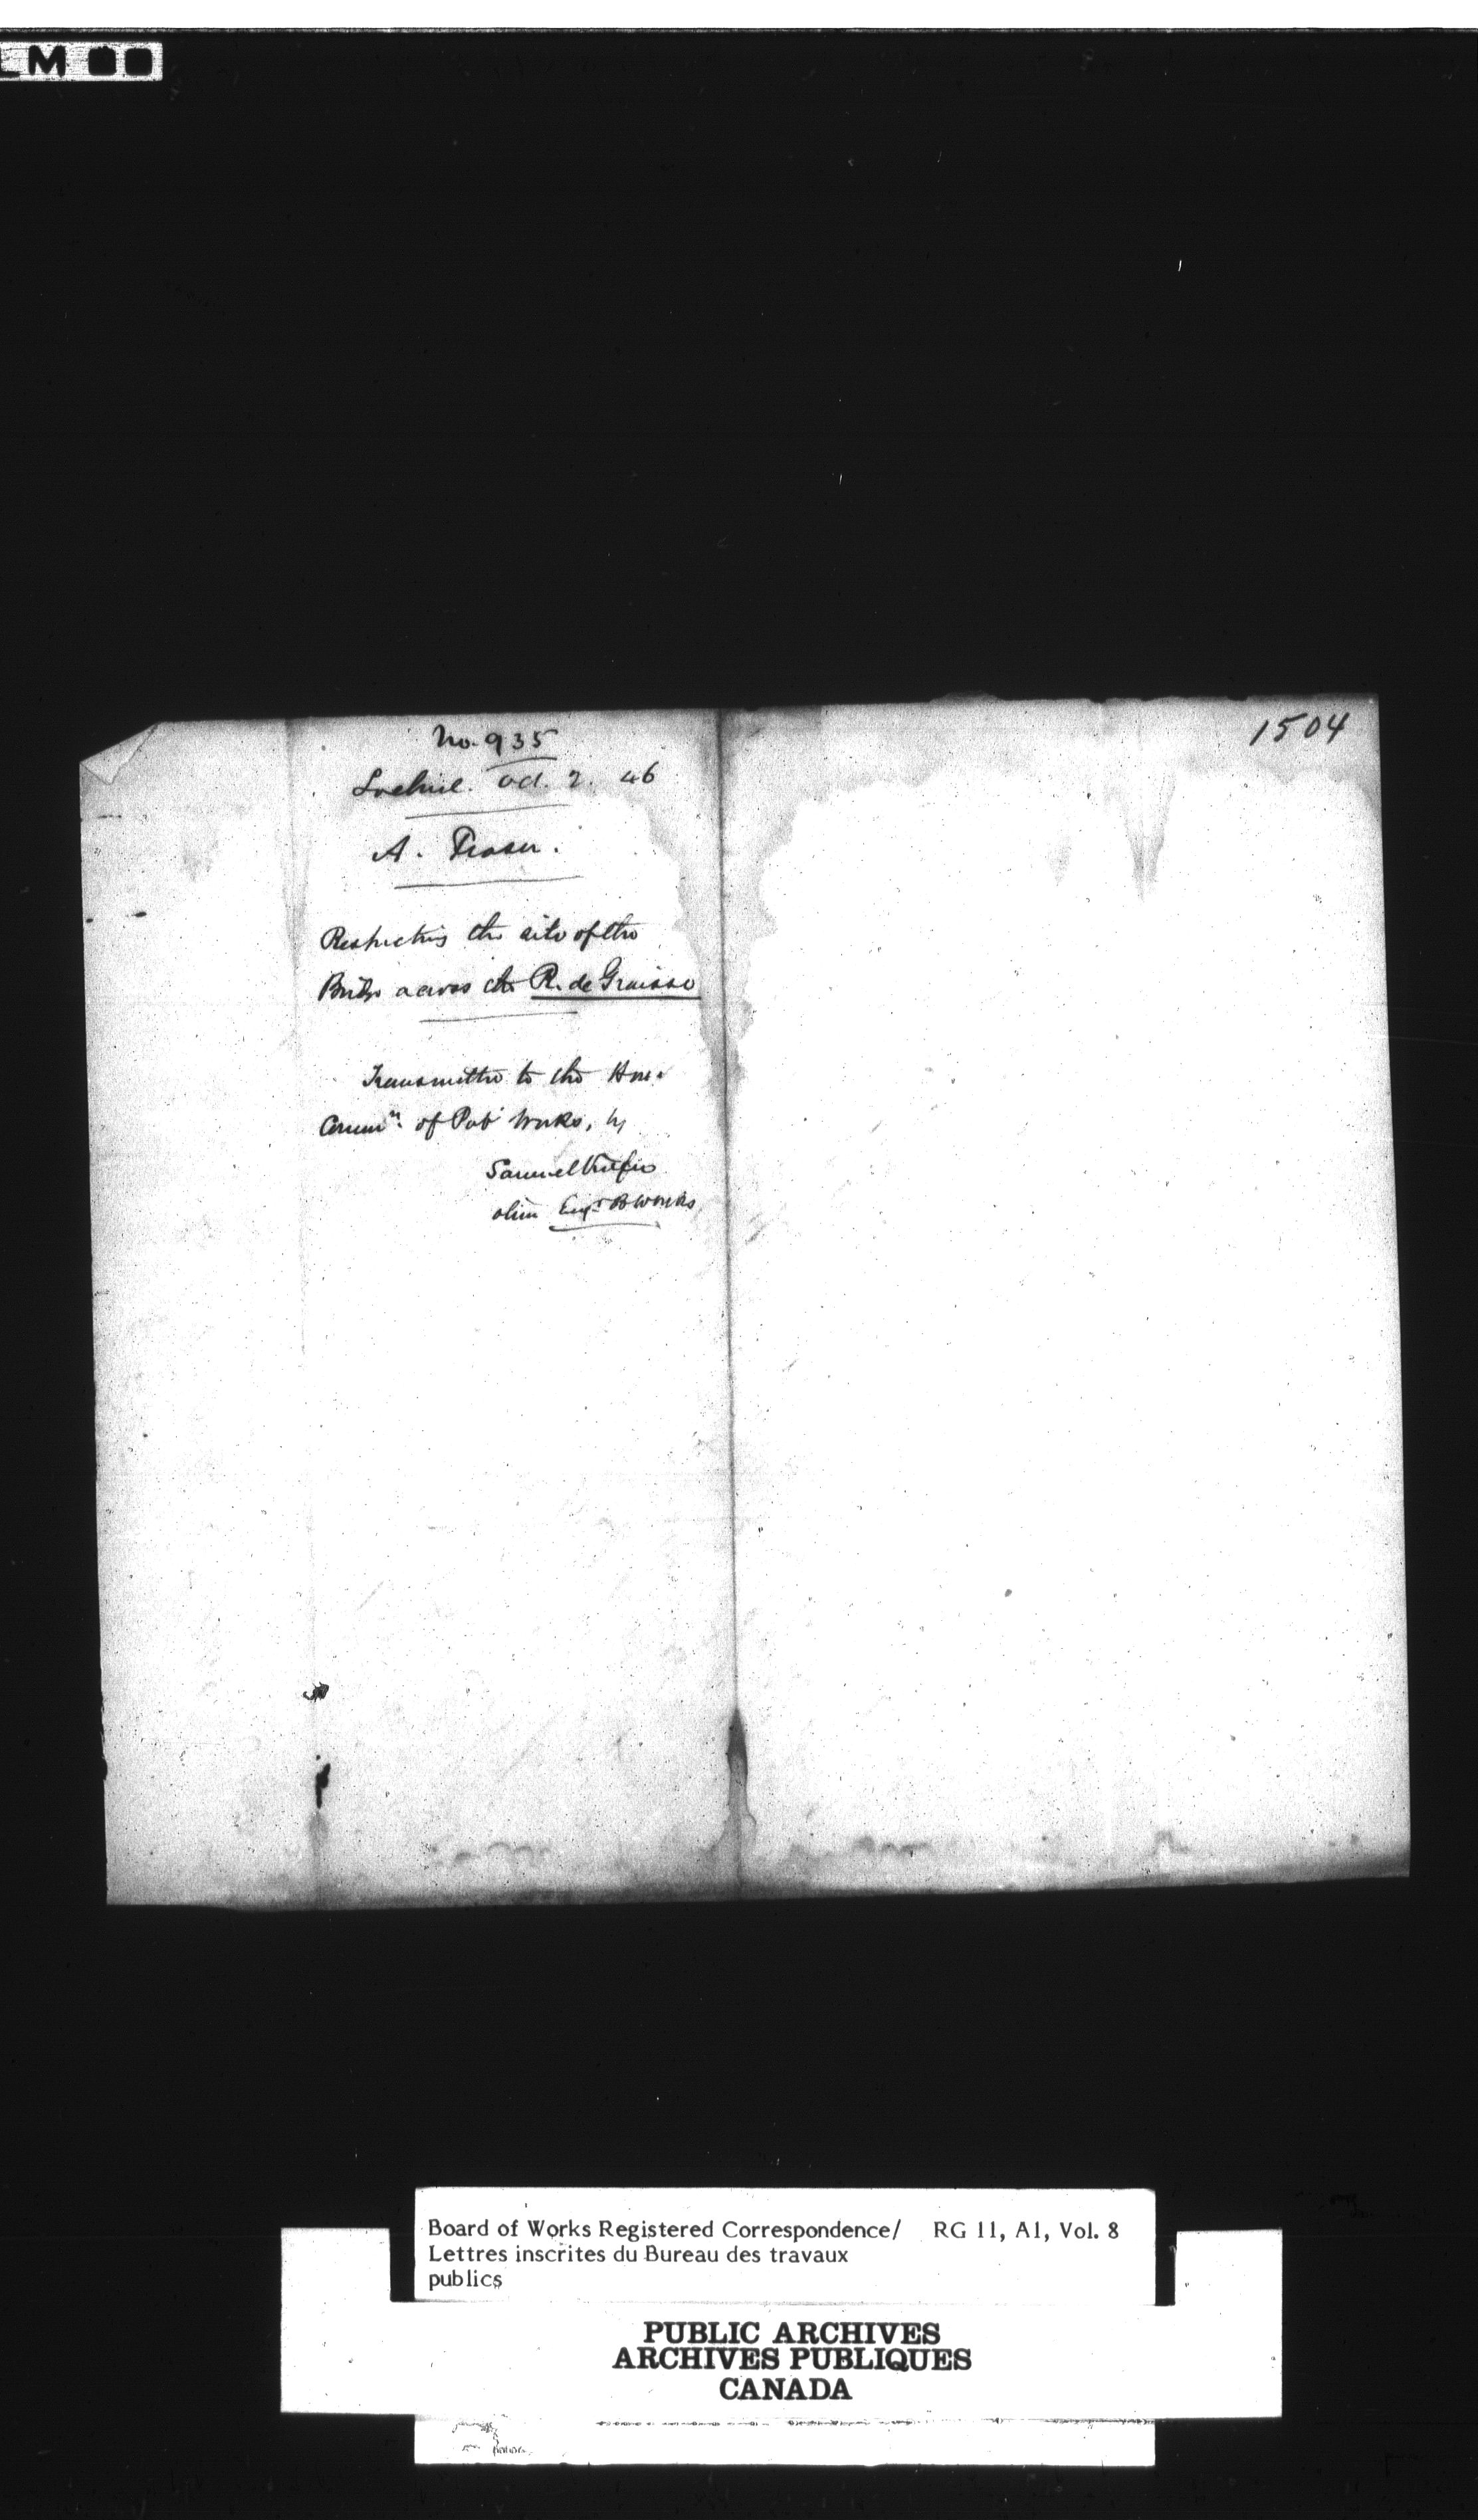 LM
No. 935
1504
Lochiel. Oct. 2. 46
A. Fraser.
Respecting the site of the
Bridge across the R. de Graisse
Transmitted to the Hon.
Commrs. of Pub Works, by
Samuel Keefer
Engr B Works
Board of Works Registered Correspondence/ RG 11, A1, Vol. 8
Lettres inscrites du Bureau des travaux
publics
PUBLIC ARCHIVES
ARCHIVES PUBLIQUES
CANADA